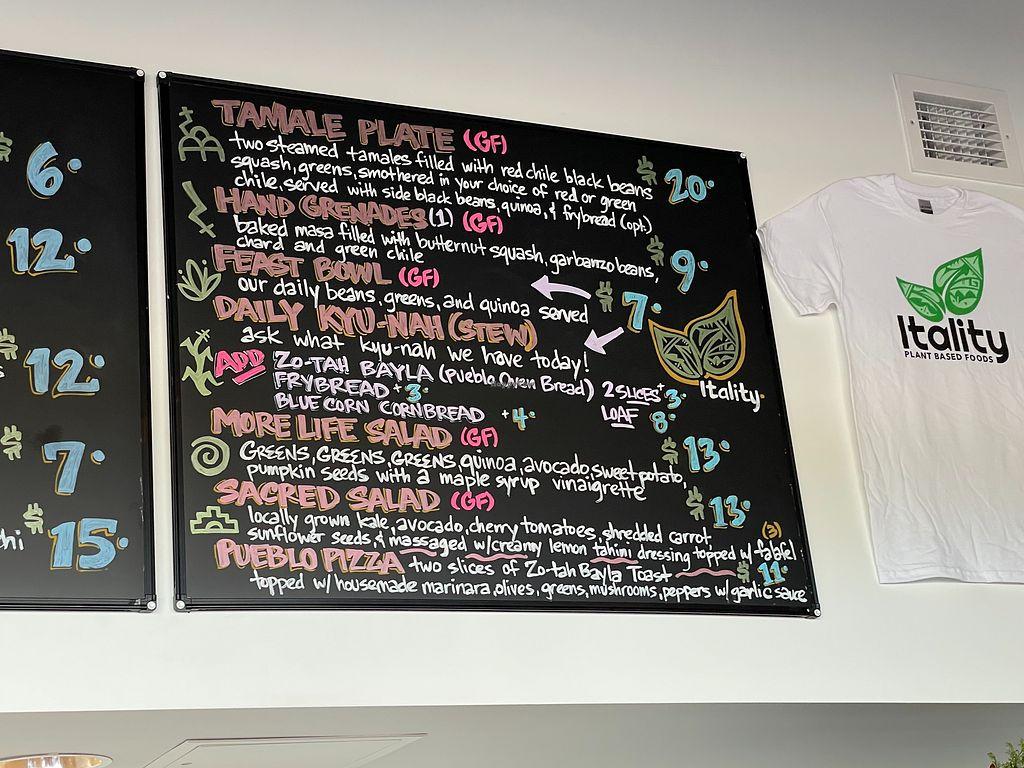 $ 6.
12.
$ 12.
$ 7.
$ 15.
hi
TAMALE PLATE (GF)
two steamed tamales filled with red chile black beans
squash, greens, smothered in your choice of red or green
chile, served with side black beans, quinoa, & frybread (opt.)
$ 20.
HAND GRENADES (1) (GF)
baked masa filled with butternut squash, garbanzo beans,
chard and green chile
$ 9.
FEAST BOWL (GF)
our daily beans, greens, and quinoa served
$ 7.
DAILY KYU-NAH (STEW)
ask what kyu-nah we have today!
ADD ZO-TAH BAYLA (Pueblo Oven Bread) 2 SLICES +3.
FRYBREAD +3. LOAF 8.
BLUE CORN CORNBREAD +4.
Itality.
MORE LIFE SALAD (GF)
GREENS, GREENS, GREENS, quinoa, avocado, sweet potato,
pumpkin seeds with a maple syrup vinaigrette
$ 13.
SACRED SALAD (GF)
locally grown kale, avocado, cherry tomatoes, shredded carrot,
sunflower seeds, & massaged w/creamy lemon tahini dressing topped w/ falafel (3)
$ 13.
PUEBLO PIZZA two slices of Zo-tah Bayla Toast $ 11.
topped w/ housemade marinara, olives, greens, mushrooms, peppers w/ garlic sauce
Itality
PLANT BASED FOODS